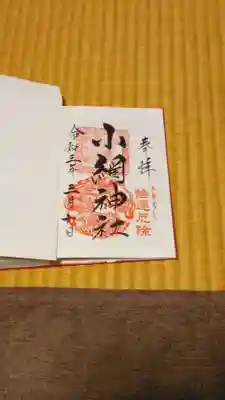 奉拝
強運厄除
小網神社
令和三年三月